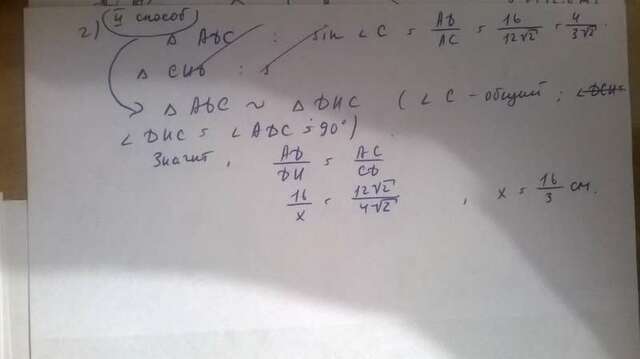 2) II способ
△ ADC : sin ∠C = AD/AC = 16/12√2 = 4/3√2
△ CHD : s
△ ADC ~ △ DHC (∠C - общий ;
∠DHC = ∠ADC = 90°)
Значит, AD/DH = AC/CD
16/x = 12√2/4√2 , x = 16/3 см.